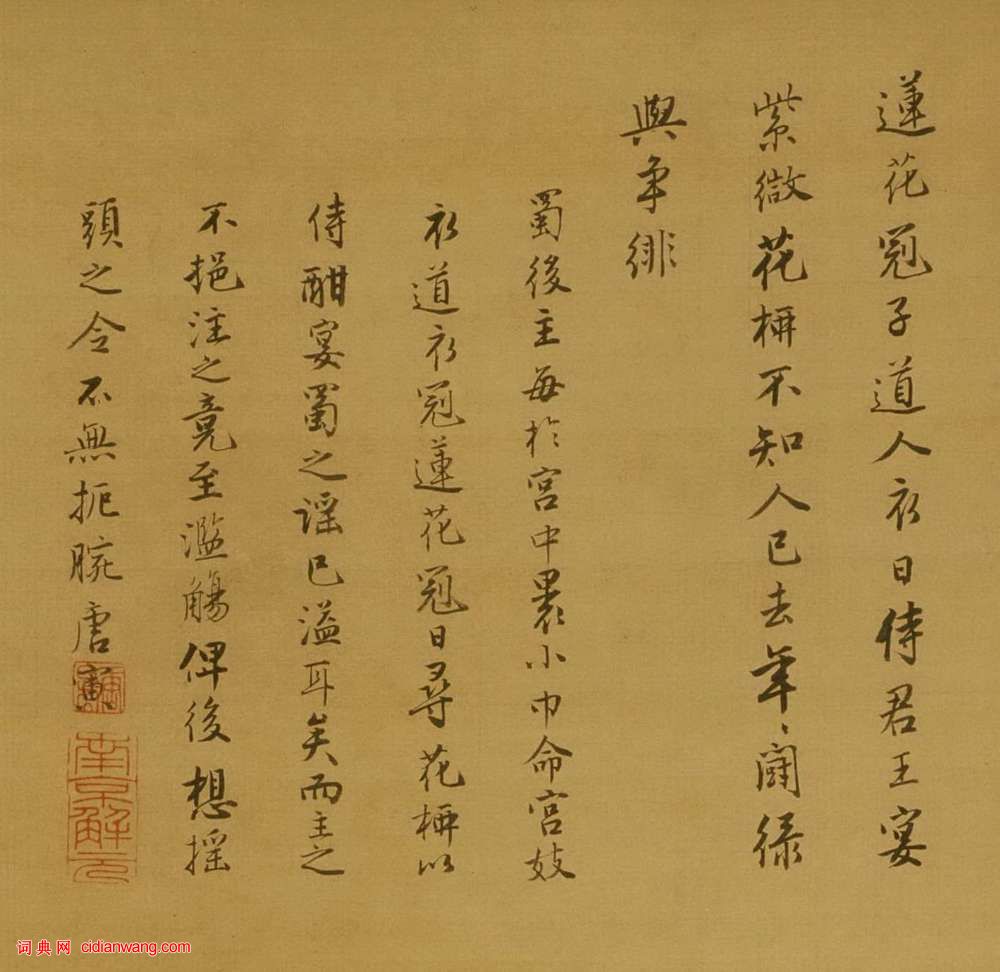 蓮花冠子道人衣日侍君王宴
紫微花柳不知人已去年〻鬪緑
與爭緋
蜀後主每於宮中裹小巾命宮妓
衣道衣冠蓮花冠日尋花柳以
侍酣宴蜀之謡已溢耳矣而主之
不挹注之竟至濫觴俾後想摇
頭之令不無扼腕唐寅
南京解元
词典网 cidianwang.com